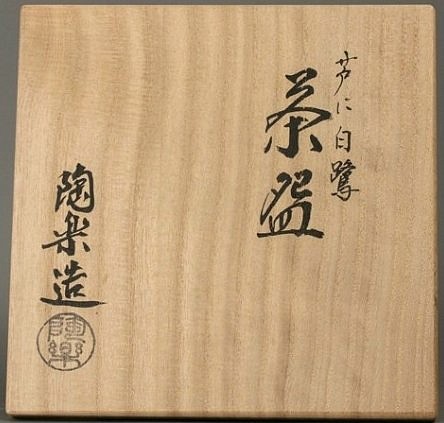 芦に白鷺
茶盌
陶楽造
陶樂